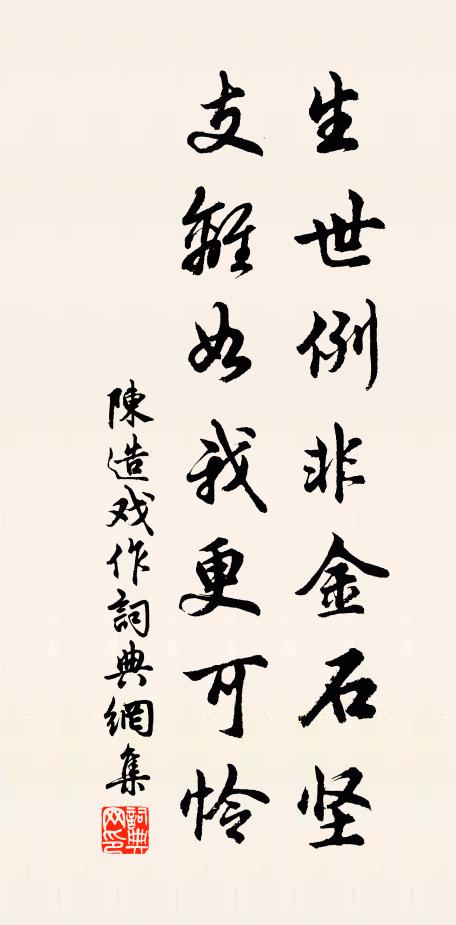 生世例非金石坚
支離如我更可怜
陳造戏作詞典網集
詞典网印